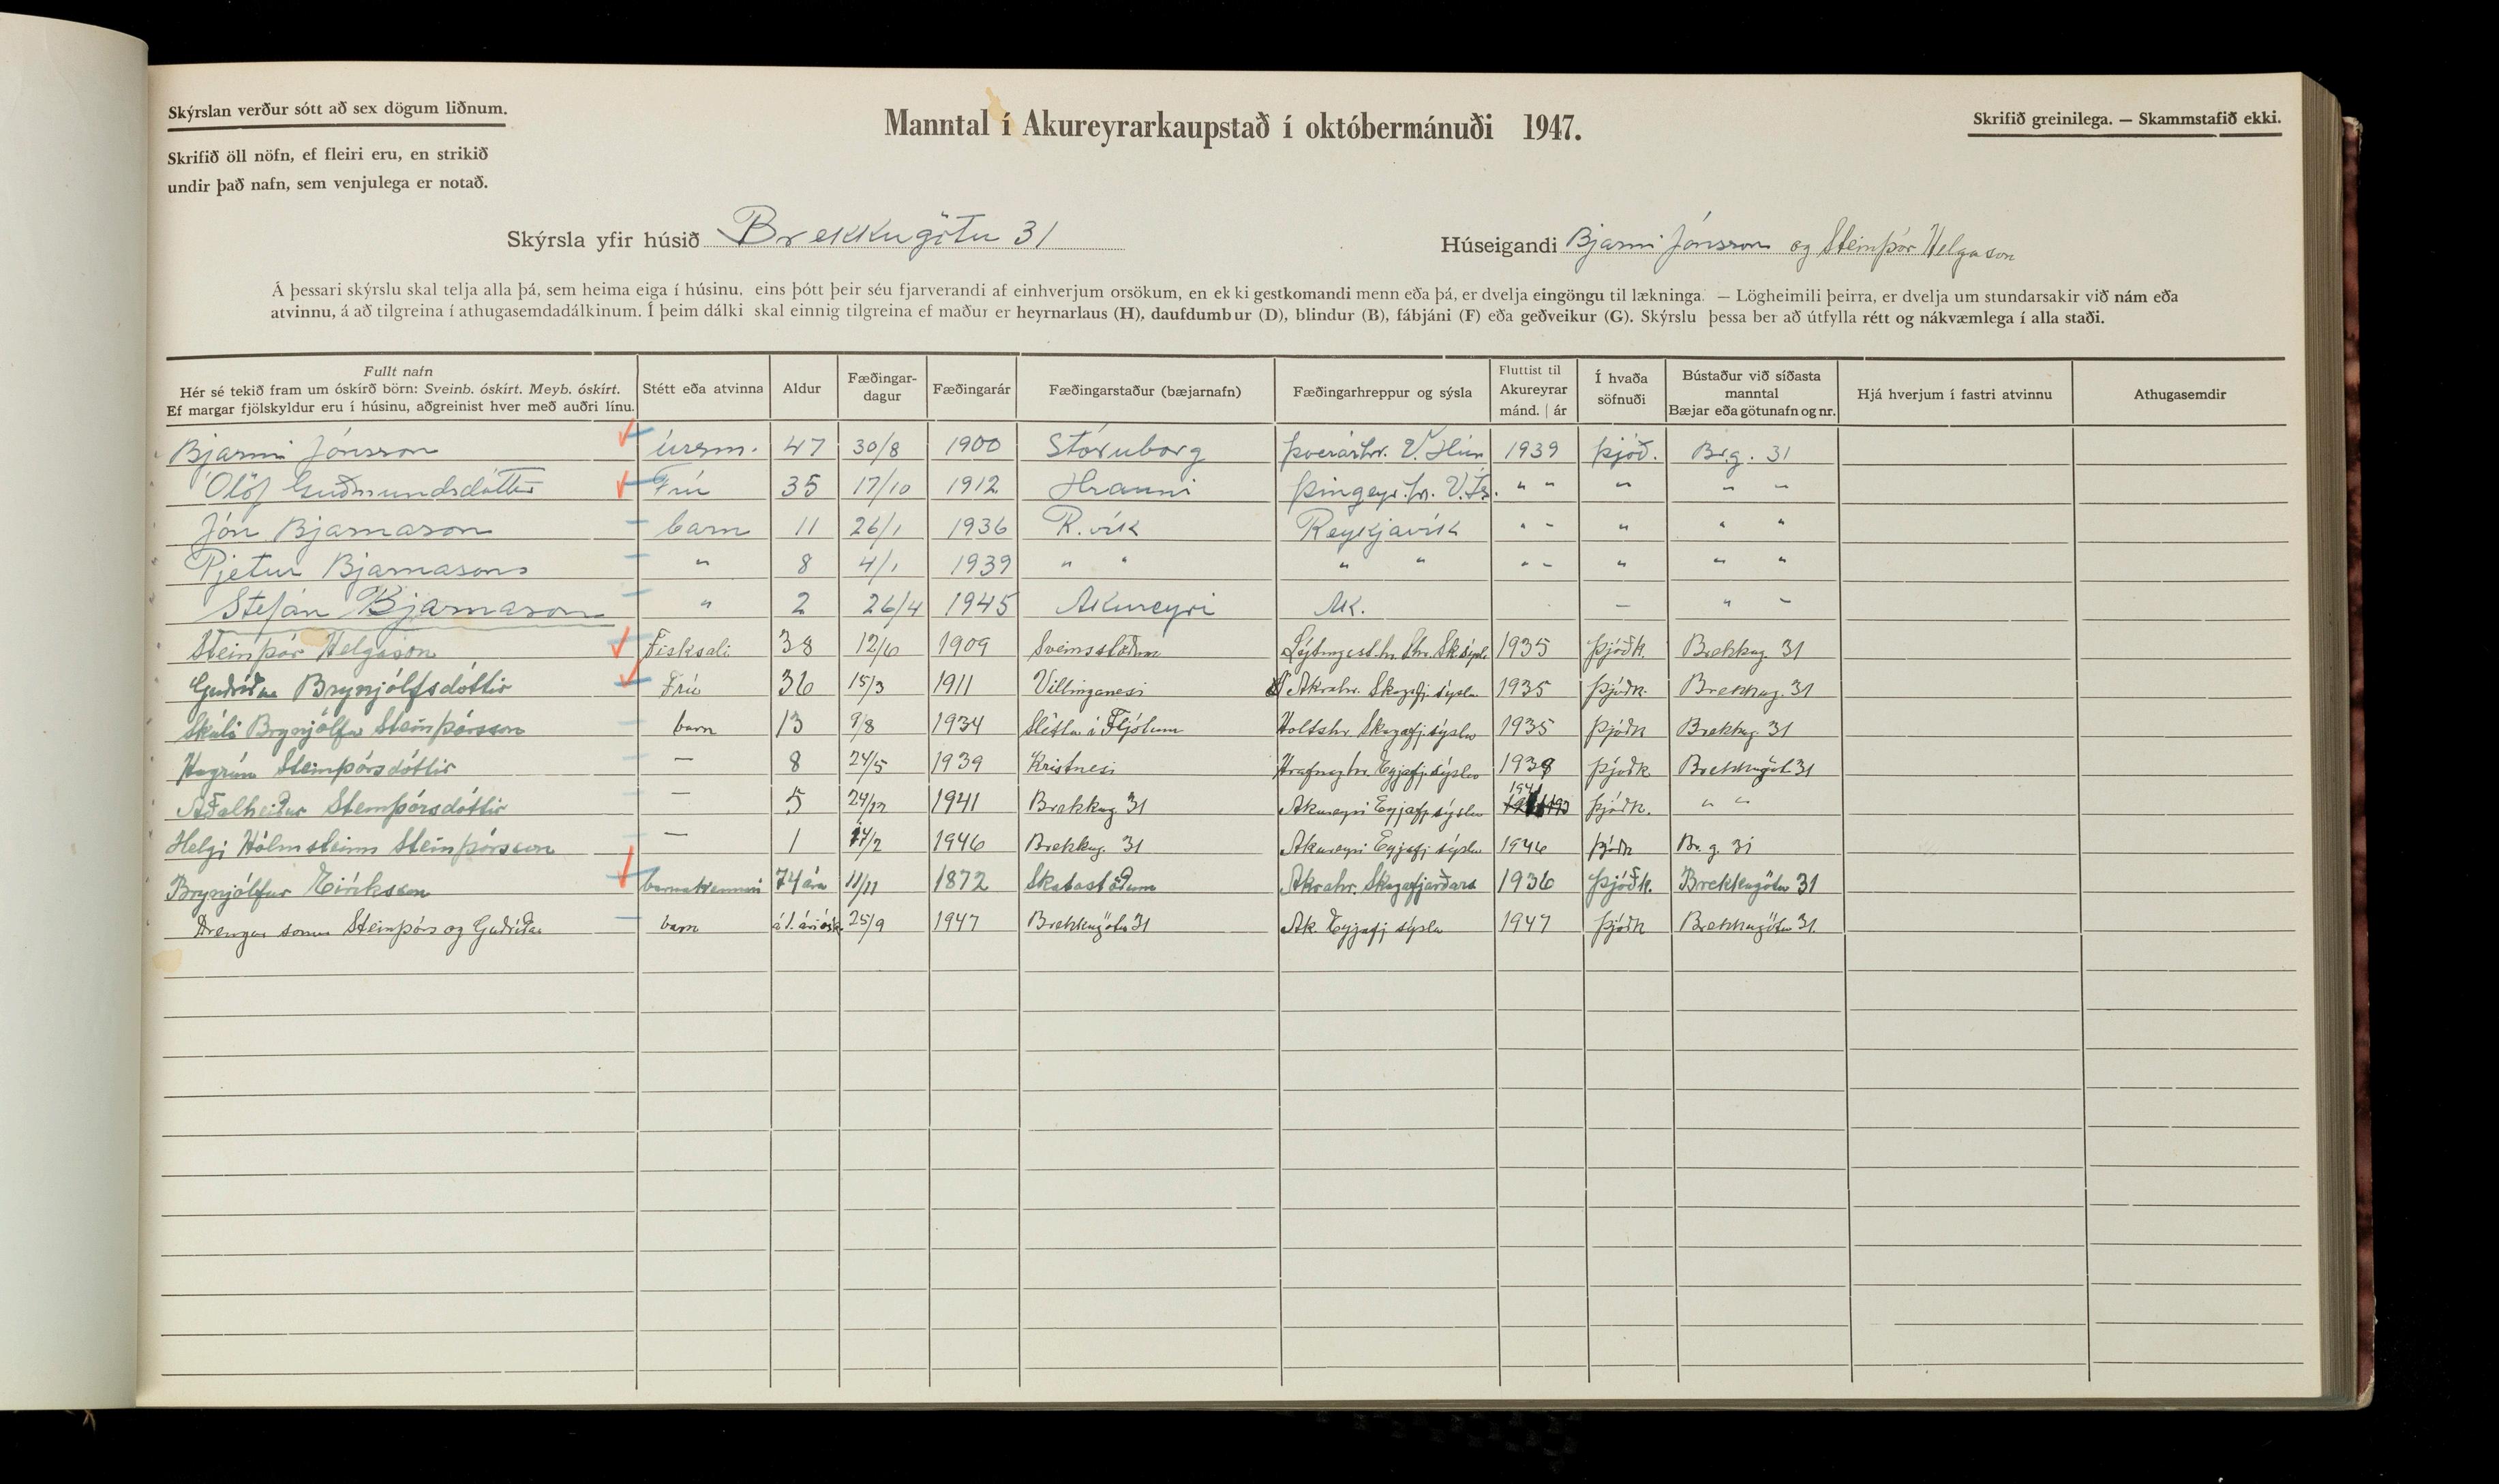 Skýrslan verður sótt að sex dögum liðnum.
Skrifið öll nöfn, ef fleiri eru, en strikið
undir það nafn, sem venjulega er notað.
Manntal í Akureyrarkaupstað í októbermánuði 1947.
Skrifið greinilega. — Skammstafið ekki.
Skýrsla yfir húsið Brekkugötu 31
Húseigandi Bjarni Jónsson og Steinþór Helgason
Á þessari skýrslu skal telja alla þá, sem heima eiga í húsinu, eins þótt þeir séu fjarverandi af einhverjum orsökum, en ekki gestkomandi menn eða þá, er dvelja eingöngu til lækninga. — Lögheimili þeirra, er dvelja um stundarsakir við nám eða
atvinnu, á að tilgreina í athugasemdadálkinum. Í þeim dálki skal einnig tilgreina ef maður er heyrnarlaus (H), daufdumbur (D), blindur (B), fábjáni (F) eða geðveikur (G). Skýrslu þessa ber að útfylla rétt og nákvæmlega í alla staði.
Fullt nafn Hér sé tekið fram um óskírð börn: Sveinb. óskírt. Meyb. óskírt. Ef margar fjölskyldur eru í húsinu, aðgreinist hver með auðri línu. Stétt eða atvinna Aldur Fæðingar-dagur Fæðingarár Fæðingarstaður (bæjarnafn) Fæðingarhreppur og sýsla Fluttist til Akureyrar mánd. | ár Í hvaða söfnuði Bústaður við síðasta manntal Bæjar eða götunafn og nr. Hjá hverjum í fastri atvinnu Athugasemdir
Bjarni Jónsson úrsm. 47 30/8 1900 Stóruborg Þverárhr. V. Hún 1939 Þjóð. Br.g. 31
Ólöf Guðmundsdóttir Frú 35 17/10 1912 Hrauni Þingeyr.hr. V.Ís. " " " " "
Jón Bjarnason barn 11 26/1 1936 R.vík Reykjavík " " " " "
Pjetur Bjarnason " 8 4/1 1939 " " " " " " " " "
Stefán Bjarnason " 2 26/4 1945 Akureyri Ak. — " "
Steinþór Helgason Fisksali 38 12/6 1909 Sveinsstöðum Lýtingsst.hr. 1935 Þjóðk. Brekkug. 31
Brynjólfsdóttir Frú 36 15/3 1911 Villinganesi Akrahr. Skagafj. sýslu 1935 Þjóðk. Brekkug. 31
Skúli Brynjólfur Steinþórsson barn 13 9/8 1934 Slétta í Fljótum Holtshr. Skagafj. sýslu 1935 Þjóðk Brekkug. 31
Hugrún Steinþórsdóttir — 8 24/5 1939 Kristnesi Hrafnag.hr. Eyjafj. sýslu 1939 Þjóðk Brekkugöt. 31
Aðalheiður Steinþórsdóttir — 5 24/12 1941 Brekkug. 31 Akureyri Eyjafj. sýslu 1941 Þjóðk. " "
Helgi Hólmsteinn Steinþórsson — 1 14/2 1946 Brekkug. 31 Akureyri Eyjafj. sýslu 1946 Þjóðk Br.g. 31
Brynjólfur Eiríksson barnakennari 74 ára 11/11 1872 Skatastöðum Akrahr. Skagafjarðars 1936 Þjóðk. Brekkugötu 31
Drengur sonur Steinþórs og Guðríðar barn á 1. ári 25/9 1947 Brekkugötu 31 Ak. Eyjafj sýslu 1947 Þjóðk Brekkugötu 31.